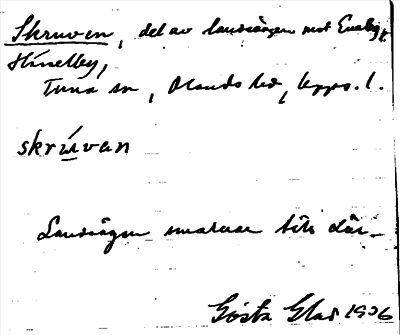 Skruven, del av landsvägen mot Eneby,
Hånelby,
Tuna sn, Olands hd, Upps. l.
skrúvan
Landsvägen smalnar lite där.
Gösta Glas 1936